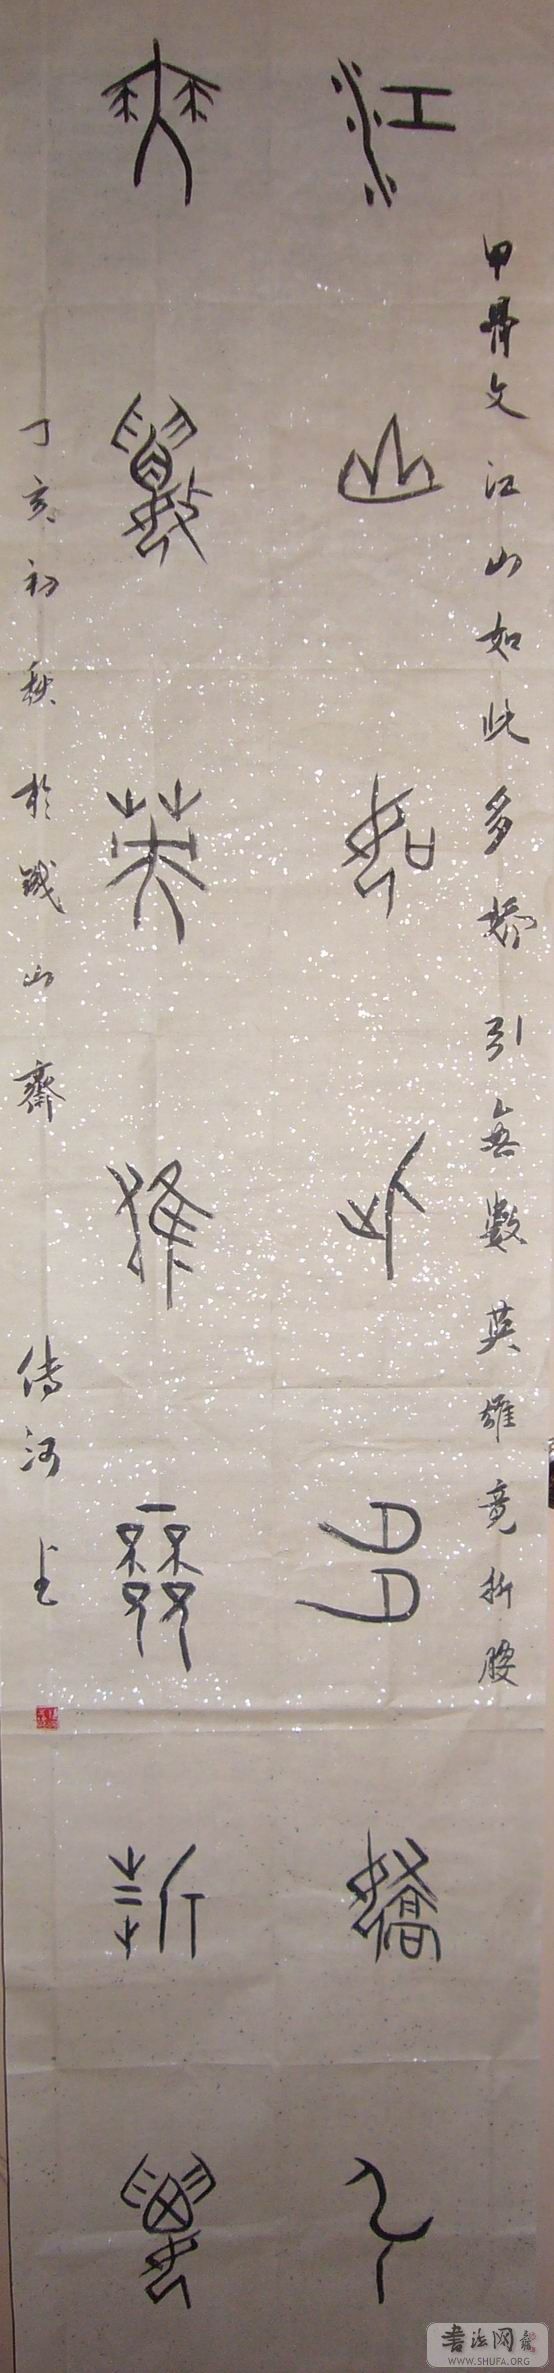 甲骨文江山如此多娇引無數英雄竟折腰
江山如此多嬌引
無數英雄競折腰
丁亥初秋於 山齋
傳河书
書法网
WWW.SHUFA.ORG